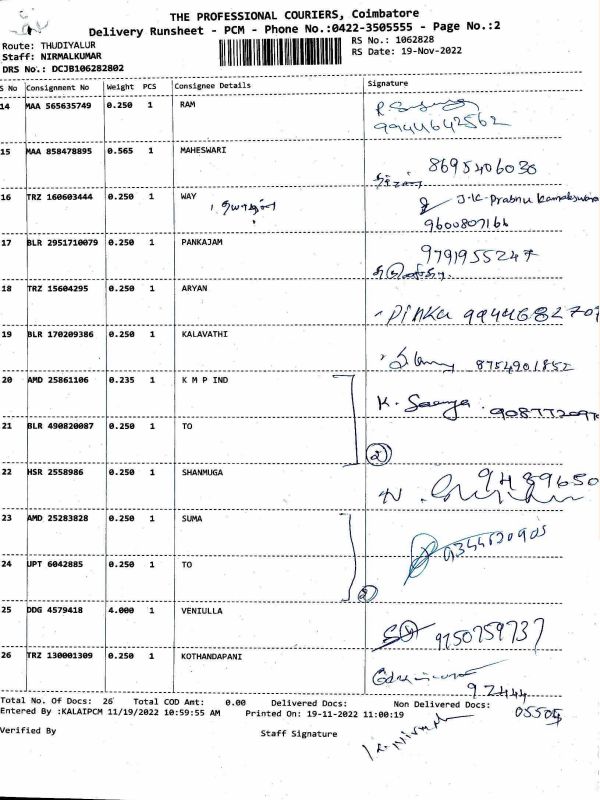 THE PROFESSIONAL COURIERS, Coimbatore
Delivery Runsheet - PCM - Phone No.:0422-3505555 - Page No.:2
Route: THUDIYALUR
RS No.: 1062828
Staff: NIRMALKUMAR
RS Date: 19-Nov-2022
DRS No.: DCJB106282802
S No Consignment No Weight PCS Consignee Details Signature
14 MAA 565635749 0.250 1 RAM
9944642562
15 MAA 858478895 0.565 1 MAHESWARI
8695406030
16 TRZ 160603444 0.250 1 WAY J.K. Prabhu
9600807166
17 BLR 2951710079 0.250 1 PANKAJAM
9791955247
18 TRZ 15604295 0.250 1 ARYAN
19 BLR 170209386 0.250 1 KALAVATHI
8754901852
20 AMD 25861106 0.235 1 K M P IND
K.
21 BLR 490820087 0.250 1 TO
2
22 HSR 2558986 0.250 1 SHANMUGA
9489650
23 AMD 25283828 0.250 1 SUMA
24 UPT 6042885 0.250 1 TO
2
25 DDG 4579418 4.000 1 VENIULLA
9750759737
26 TRZ 130001309 0.250 1 KOTHANDAPANI
Total No. Of Docs: 26 Total COD Amt: 0.00 Delivered Docs: Non Delivered Docs:
05505
Entered By :KALAIPCM 11/19/2022 10:59:55 AM Printed On: 19-11-2022 11:00:19
Verified By Staff Signature